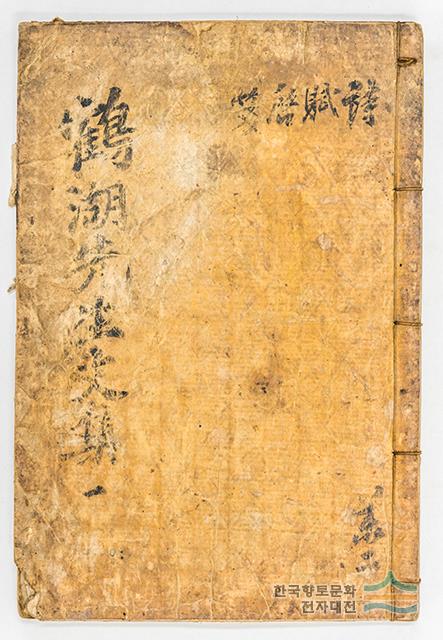 詩賦啓箋
鶴湖先生文集 一
한국향토문화
전자대전